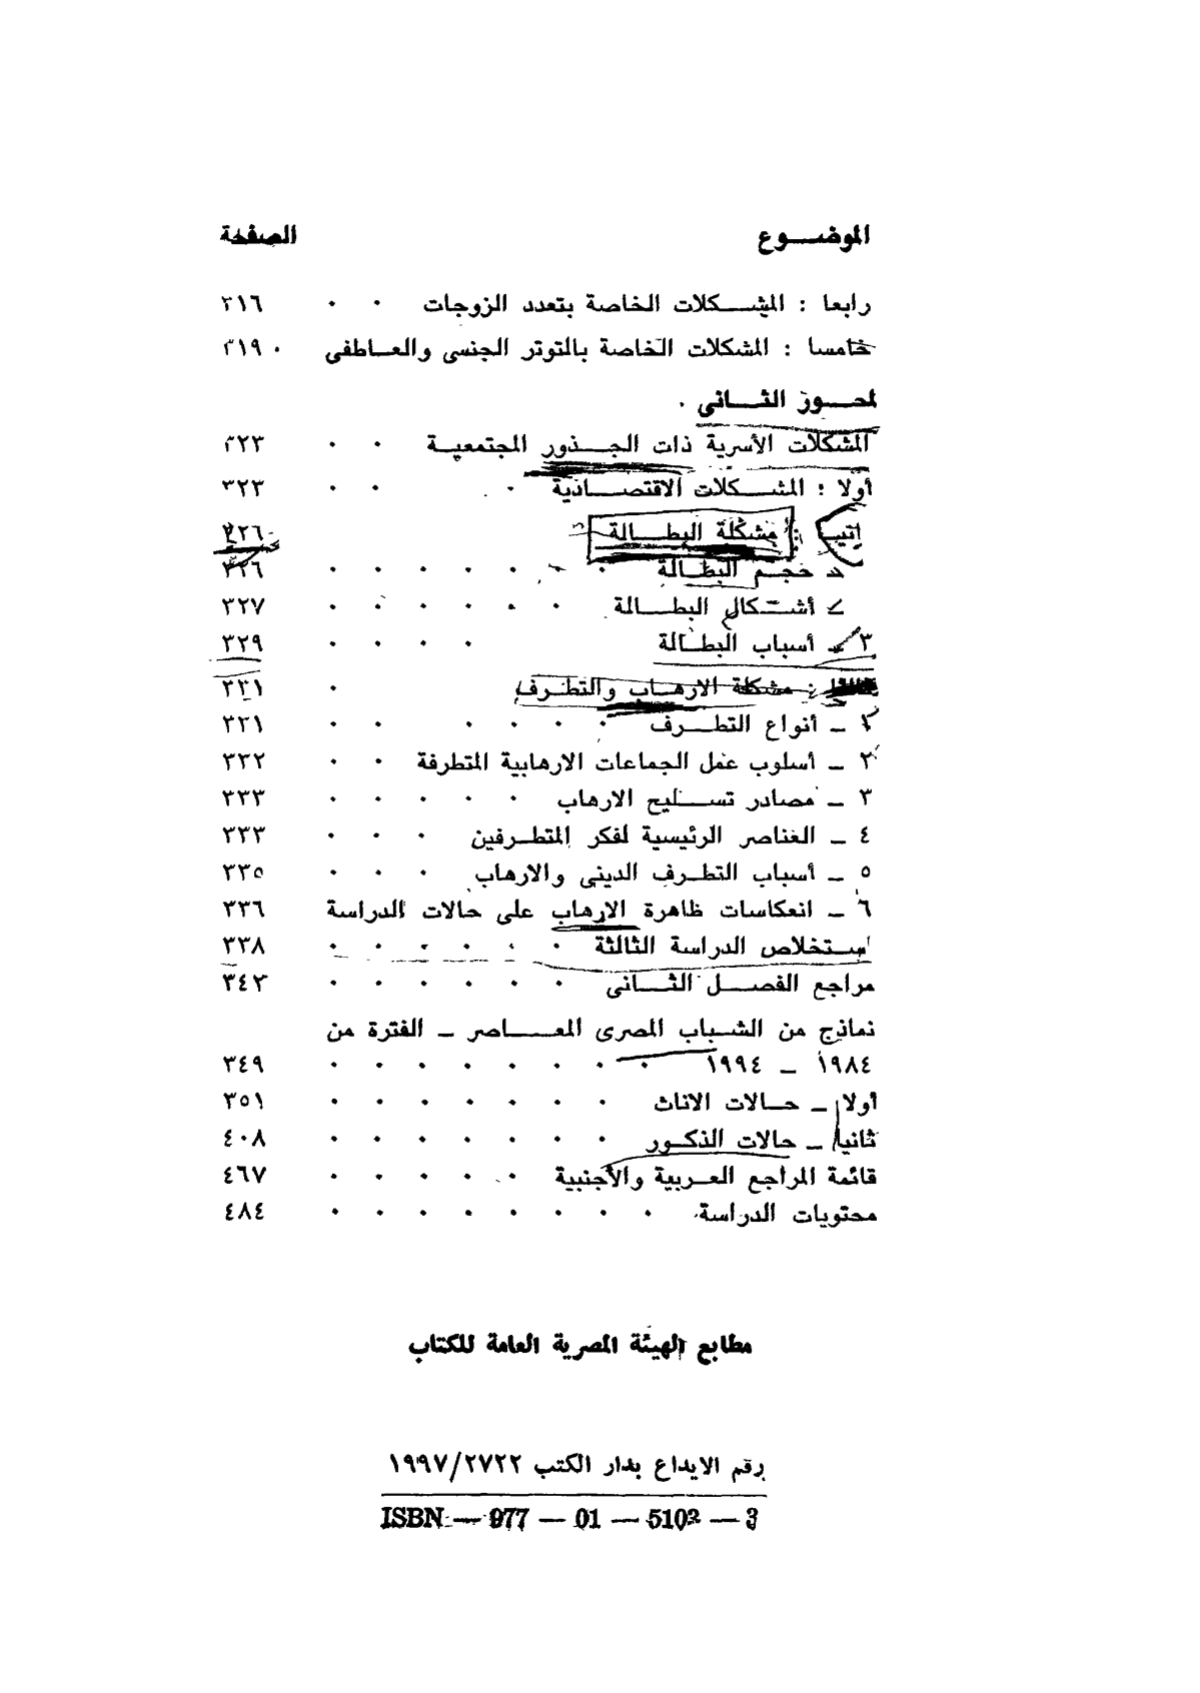 الموضـــوع الصفحة
رابعا : المشــكلات الخاصة بتعدد الزوجات . . ٣١٦
خامسا : المشكلات الخاصة بالتوتر الجنسى والعـاطفى . ٣١٩
لمحـــور الثـــانى .
المشكلات الأسرية ذات الجــذور المجتمعيــة . . ٣٢٣
أولا : المشــكلات الاقتصــادية . . . ٣٢٣
انيـا : مشكلة البطــالة ٣٢٦
حجــم البطــالة . . . . . . ٣٢٦
٢ أشـكال البطــالة . . . . . . ٣٢٧
٣ ـ أسباب البطــالة . . . . ٣٢٩
مشكلة الارهــاب والتطـرف . ٣٣١
١ ـ أنواع التطــرف . . . . . . ٣٣١
٢ ـ أسلوب عمل الجماعات الارهابية المتطرفة . . ٣٣٢
٣ ـ مصادر تســليح الارهاب . . . . . ٣٣٣
٤ ـ العناصر الرئيسية لفكر المتطرفين . . . ٣٣٣
٥ ـ أسباب التطـرف الدينى والارهاب . . . ٣٣٥
٦ ـ انعكاسات ظاهرة الارهاب على حالات الدراسة ٣٣٦
استخلاص الدراسة الثالثة . . . . . . ٣٣٨
مراجع الفصــل الثــانى . . . . . . ٣٤٣
نماذج من الشباب المصرى المعـــاصر ـ الفترة من
١٩٨٤ ـ ١٩٩٤ . . . . . . . . ٣٤٩
أولا ـ حـالات الاناث . . . . . . . ٣٥١
ثانيا ـ حالات الذكـور . . . . . . . ٤٠٨
قائمة المراجع العــربية والأجنبية . . . . . ٤٦٧
محتويات الدراسة . . . . . . . . ٤٨٤
مطابع الهيئة المصرية العامة للكتاب
رقم الايداع بدار الكتب ١٩٩٧/٢٧٢٢
ISBN — 977 — 01 — 5102 — 3